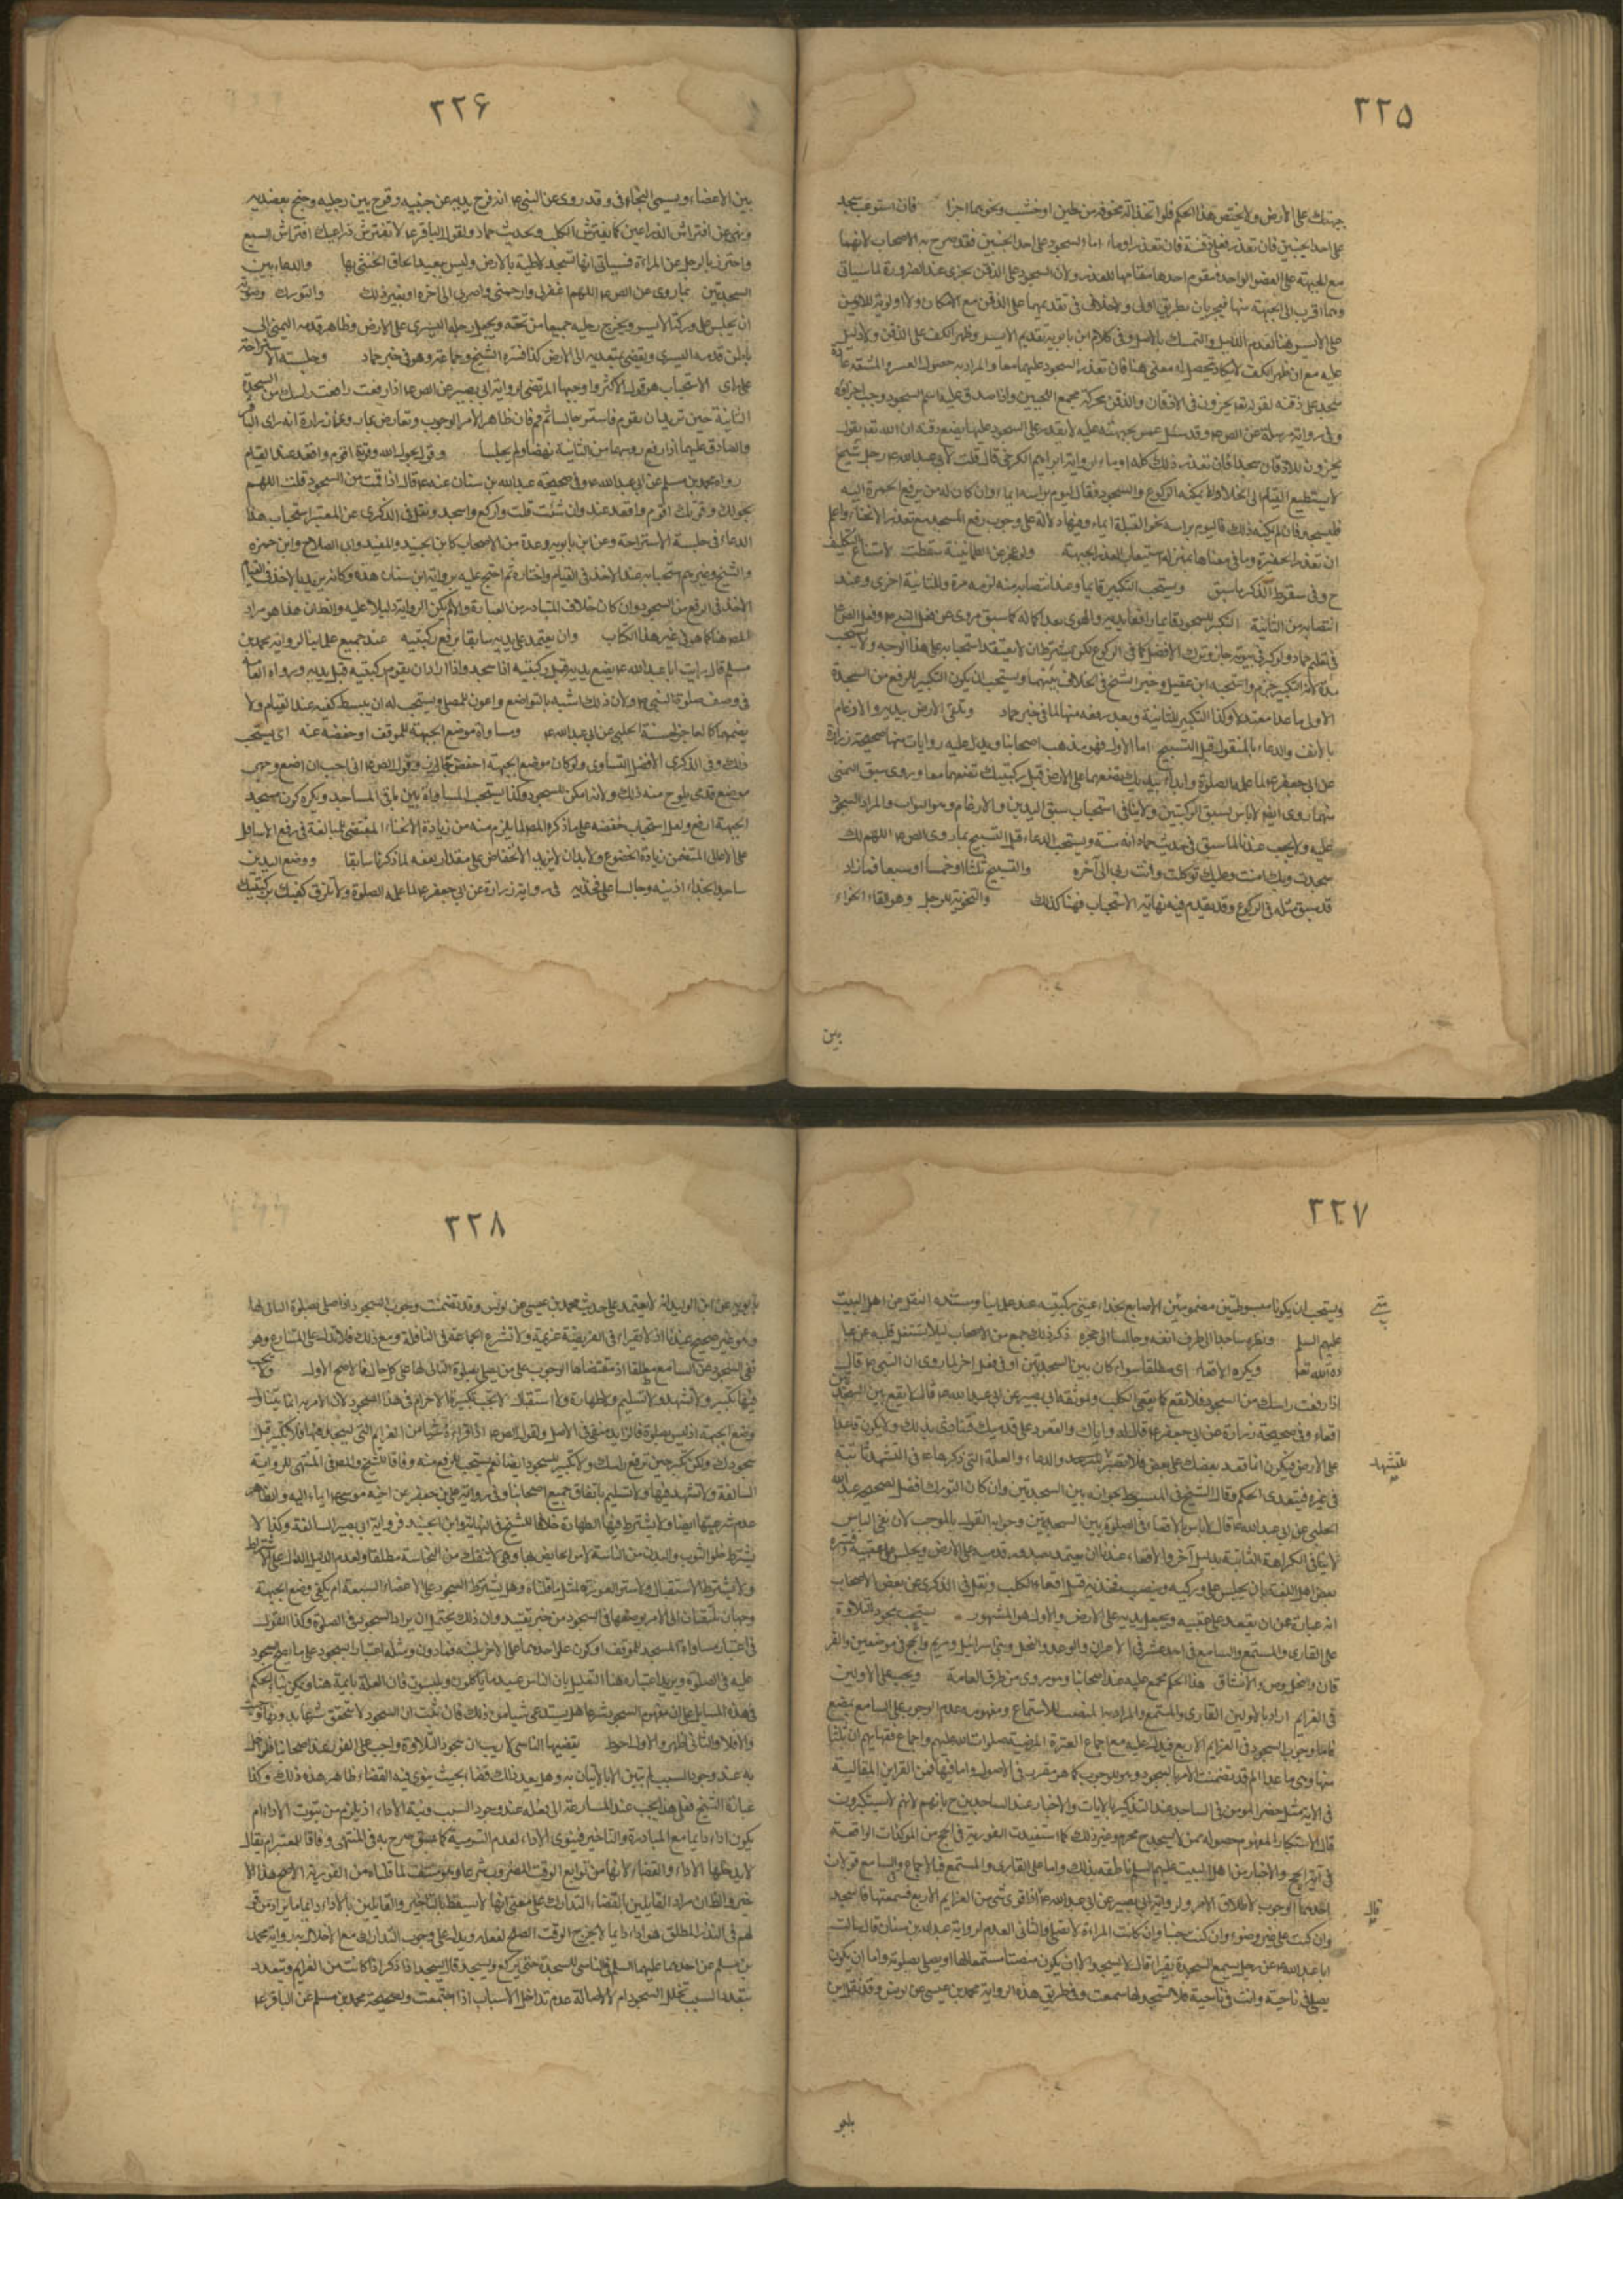 ٢٢٥
جبهتك على الارض ولا يختص هذا الحكم فلو اتخذ آلة مجوفة من طين او خشب ونحوهما اجزا فان استوعب سجد
على احد الجبينين فان تعذر فعلى ذقنه فان تعذر اوماء اما السجود على احد الجبينين فقد صرح به الاصحاب لانهما
مع الجبهة على العضو الواحد فيقوم احدها مقامها للعذر ولان السجود على الذقن يجزى عند الضرورة لما سياتى
وهما اقرب الى الجبهة منها فيجزيان بطريق اولى ولا خلاف فى تقديمهما على الذقن مع الامكان ولا اولوية للايمن
على الايسر هنا لعدم الدليل والتمسك بالاصل وفى كلام ابن بابويه تقديم الايسر وظهر الكف على الذقن ولا دليل
عليه مع ان ظهر الكف لا يكاد يحصل له معنى هنا فان تعذر السجود عليهما معا والمراد به حصول العسر والمشقة عادة
سجد على ذقنه لقوله تعالى يخرون للاذقان والذقن محركة مجمع اللحيين واذا صدق عليه اسم السجود وجب اجزاؤه
وفى رواية مرسلة عن الص ع وقد سئل عمن بجبهته علة لا يقدر على السجود عليها يضع ذقنه ان الله تعالى يقول
يخرون للاذقان سجدا فان تعذر ذلك كله اوماء لرواية ابراهيم الكرخى قال قلت لابى عبد الله ع رجل شيخ
لا يستطيع القيام الى الخلا ولا يمكنه الركوع والسجود فقال ليوم براسه ايماء وان كان له من يرفع الخمرة اليه
فليسجد فان لم يمكنه ذلك فليوم براسه نحو القبلة ايماء وفيها دلالة على وجوب رفع المسجد مع تعذر الانحناء واعلم
ان تعذر الحفيرة وما فى معناها بمنزلة استيعاب العذر الجبهة ولو عجز عن الطمانينة سقطت لامتناع التكليف
ح وفى سقوط الذكر ما سبق ويستحب التكبير قايما وعند انتصابه منه لرفعه مرة وللثانية اخرى وعند
انتصابه من الثانية التكبير للسجود قايما رافعا يديه والهوى بعد اكماله كما سبق مروى عن فعل النبى ص وفعل الص ع
فى تعليم حماد ولو كبر فى هويه جاز وترك الافضل كما فى الركوع لكن يشترط ان لا يعتقد استحبابه على هذا الوجه ولا يستحب
مده لان التكبير جزم واستحبه ابن عقيل وخير الشيخ فى الخلاف بينهما ويستحب ان يكون التكبير للرفع من السجدة
الاولى ما عدا معتدلا وكذا التكبير للثانية وبعد رفعه منها لما فى خبر حماد وتلقى الارض بيديه والارغام
بالانف والدعاء بالمنقول قبل التسبيح اما الاول فهو مذهب اصحابنا ويدل عليه روايات منها صحيحة زرارة
عن ابى جعفر ع لما علمه الصلوة وابداء بيديك تضعهما على الارض قبل ركبتيك تضعهما معا وروى سبق اليمنى
منهما وروى ايضا لا باس بسبق الركبتين ولا ينافى استحباب سبق اليدين والارغام وهو التراب والمراد السجود
عليه ولا يجب عندنا لما سبق فى حديث حماد انه سنة ويستحب الدعاء قبل التسبيح بما روى الص ع اللهم لك
سجدت وبك امنت وعليك توكلت وانت ربى الى آخره والتسبيح ثلثا او خمسا او سبعا فما زاد
قد سبق مثله فى الركوع وقد تقدم فيه نهاية الاستحباب فهنا كذلك والتخوية للرجل وهو القاء الخواء
بين
٢٢۶
بين الاعضاء ويسمى التجافى وقد روى عن النبى ص انه فرج يديه عن جنبيه وفرج بين رجليه وجنح بعضديه
ونهى عن افتراش الذراعين كما يفترش الكلب ولحديث حماد ولقول الباقر ع لا تفترش ذراعيك افتراش السبع
واحترز بالرجل عن المراة فسياتى انها تسجد لاطية بالارض وليس ببعيد الحاق الخنثى بها والدعاء بين
السجدتين بما روى عن الص ع اللهم اغفر لى وارحمنى واجبرنى الى اخره او بغير ذلك والتورك وهو
ان يجلس على وركه الايسر ويخرج رجليه جميعا من تحته ويجعل رجله اليسرى على الارض وظاهر قدمه اليمنى الى
باطن قدمه اليسرى ويفضى بمقعدته الى الارض كذا فسره الشيخ وجماعة وهو فى خبر حماد وجلسة الاستراحة
على راى الاستحباب هو قول الاكثر واوجبها المرتضى لرواية ابى بصير عن الص ع اذا رفعت راسك من السجدة
الثانية حين تريد ان تقوم فاستو جالسا ثم قم فان ظاهر الامر الوجوب وتعارض بما رواه زرارة انه راى الباقر
والصادق عليهما السلم اذا رفعا رؤسهما من الثانية نهضا ولم يجلسا وقول بحول الله وقوته اقوم واقعد عند القيام
رواه محمد بن مسلم عن ابى عبد الله ع وفى صحيحة عبد الله بن سنان عنه ع قال اذا قمت من السجود قلت اللهم
بحولك وقوتك اقوم واقعد وان شئت قلت واركع واسجد ونقل فى الذكرى عن المعتبر استحباب هذا
الدعاء فى جلسة الاستراحة وعن ابن بابويه وعدة من الاصحاب كابن الجنيد والمفيد وابى الصلاح وابن حمزه
والشيخ وغيرهم استحبابه عند الاخذ فى القيام واختاره ثم احتج عليه برواية ابن سنان هذه وكانه يريد بالاخذ فى القيام
الاخذ فى الرفع من السجود وان كان خلاف المتبادر من العبارة والا لم يكن الرواية دليلا عليه والظاهر هذا هو مراد
المص هنا كما هو فى غير هذا الكتاب وان يعتمد على يديه سابقا برفع ركبتيه عند جميع علمائنا لرواية محمد بن
مسلم قال رايت ابا عبد الله ع يضع يديه قبل ركبتيه اذا سجد واذا اراد ان يقوم رفع ركبتيه قبل يديه ورواه العامة
فى وصف صلوة النبى ص ولان ذلك اشبه بالتواضع واعون للمصلى ويستحب له ان يبسط كفيه عند القيام ولا
يضمهما كالعاجن لحسنة الحلبى عن ابى عبد الله ع ومساواة موضع الجبهة للموقف او خفضه عنه اى يستحب
ذلك وفى الذكرى الافضل التساوى ولو كان موضع الجبهة اخفض جاز وقول الص ع انى احب ان اضع وجهى
موضع قدمى يلوح منه ذلك ولانه امكن للسجود وكذا يستحب المساواة بين باقى المساجد ويكره كون مسجد
الجبهة ارفع ولعل استحباب خفضه على ما ذكره المص لما يلزم منه من زيادة الانحناء المقتضى للمبالغة فى رفع الاسافل
على الاعالى المتضمن زيادة الخضوع ولا بد ان لا يزيد الانخفاض على مقدار رفعه لما ذكرناه سابقا ووضع اليدين
ساجدا بحذاء اذنيه وجالسا على فخذيه فى رواية زرارة عن ابى جعفر ع لما علمه الصلوة ولا تلزق كفيك بركبتيك
٢٢٧
ويستحب ان يكونا مبسوطتين مضمومتى الاصابع بحذاء عينى ركبتيه عند علمائنا ومستنده النقل عن اهل البيت
عليهم السلم ونظره ساجدا الى طرف انفه وجالسا الى حجره ذكر ذلك جمع من الاصحاب لئلا يشتغل قلبه عن عبا
دة الله تعالى ويكره الاقعاء اى مطلقا سواء كان بين السجدتين او فى فعل اخر لما روى ان النبى ص قال
اذا رفعت راسك من السجود فلا تقع كما يقعى الكلب ولموثقة ابى بصير عن ابى عبد الله ع قال لا تقع بين السجدتين
اقعاء وفى صحيحة زرارة عن ابى جعفر ع قال له واياك والقعود على قدميك فتتاذى بذلك ولا تكون قاعدا
على الارض فيكون انما قعد بعضك على بعض فلا تصبر للتشهد والدعاء والعلة التى ذكرها ع فى التشهد ثابتة
فى غيره فيتعدى الحكم وقال الشيخ فى المبسوط بجوازه بين السجدتين وان كان التورك افضل لصحيحة عبيد الله
الحلبى عن ابى عبد الله ع قال لا باس بالاقعاء فى الصلوة بين السجدتين وجوابه القول بالموجب لان نفى الباس
لا ينافى الكراهة الثابتة بدليل آخر والاقعاء عندنا ان يعتمد بصدور قدميه على الارض ويجلس على عقبيه وفسره
بعض اهل اللغة بان يجلس على وركيه وينصب فخذيه قبل اقعاء الكلب ونقل فى الذكرى عن بعض الاصحاب
انه عبارة عن ان يقعد على عقبيه ويجعل يديه على الارض والاول هو المشهور يستحب سجود التلاوة
على القارى والمستمع والسامع فى احد عشر فى الاعراف والرعد والنحل وبنى اسرائيل ومريم والحج فى موضعين والفر
قان والنمل وص والانشقاق هذا الحكم مجمع عليه عند اصحابنا ومروى من طرق العامة ويجب على الاولين
فى العزايم اراد بالاولين القارى والمستمع والمراد به المنصت للاستماع ومفهومه عدم الوجوب على السامع بغير
فاما وجوب السجود فى العزايم الاربع فيدل عليه مع اجماع العترة المرضية صلوات الله عليهم واجماع فقهائهم ان ثلثا
منها وهى ما عدا الم قد تضمنت الامر بالسجود وهو للوجوب كما هو مقرر فى الاصول واما فيها فمن القراين المقالية
فى الاية مثل حصر المومن فى الساجد عند التذكير بالايات والاخبار عند الساجدين ح بانهم لا يستكبرون
فان الاستكبار المفهوم حصوله ممن لا يسجد ح محرم وغير ذلك كما استفيدت الفورية فى الحج من الموكدات الواقعة
فى آية الحج والاخبار من اهل البيت عليهم السلم ناطقة بذلك واما على القارى والمستمع فبالاجماع والسامع قولان
احدهما الوجوب لاطلاق الامر ولرواية ابى بصير عن ابى عبد الله ع اذا قرى شئ من العزايم الاربع فسمعتها فاسجد
وان كنت على غير وضوء وان كنت جنبا وان كانت المراة لا تصلى والثانى العدم لرواية عبد الله بن سنان قال سالت
ابا عبد الله ع عن رجل سمع السجدة تقراء قال لا يسجد الا ان يكون منصتا مستمعا لها او يصلى بصلوته واما ان يكون
يصلى فى ناحية وانت فى ناحية فلا تسجد لما سمعت وفى طريق هذه الرواية محمد بن عيسى عن يونس وقد نقل ابن
للتشهد
قال
بابو
٢٢٨
بابويه عن ابن الوليد انه لا يعتمد على حديث محمد بن عيسى عن يونس وقد تضمنت وجوب السجود اذا صلى بصلوة التالى لها
وهو غير صحيح عندنا اذ لا يقراء فى الفريضة عزيمة ولا تشرع الجماعة فى النافلة ومع ذلك فلا تدل على المتنازع وهو
نفى السجود عن السامع مطلقا اذ مقتضاها الوجوب على من يصلى بصلوة التالى لها على كل حال فالاصح الاول ولا يجب
فيها تكبير ولا تشهد ولا تسليم ولا طهارة ولا استقبال لا يجب تكبيرة الاحرام فى هذا السجود لان الامر به انما يتناول
وضع الجبهة اذ ليس بصلوة فالزايد منفى فى الاصل ولقول الص ع اذا قرات شيئا من العزايم التى تسجد فيها فلا تكبر قبل
سجودك ولكن تكبر حين ترفع راسك ولا تكبير للسجود ايضا نعم يستحب للرفع منه وفاقا للشيخ والمص فى المنتهى للرواية
السالفة ولا تشهد فيها ولا تسليم باتفاق جميع اصحابنا وفى رواية على بن جعفر عن اخيه موسى ع ايماء اليه والظاهر
عدم شرعيتها ايضا ولا يشترط فيها الطهارة خلافا للشيخ فى النهاية وابن الجنيد فرواية ابى بصير السالفة وكذا لا
يشترط خلو الثوب والبدن من النجاسة لامر الحايض بها وهى لا تنفك من النجاسة مطلقا ولعدم الدليل الدال على الاشتراط
ولا يشترط الاستقبال ولا ستر العورة لمثل ما قلناه وهل يشترط السجود على الاعضاء السبعة ام يكفى وضع الجبهة
وجهان يلتفتان الى الامر بوضعها فى السجود من غير تقييد وان ذلك يحتمل ان يراد السجود فى الصلوة وكذا القول
فى اعتبار مساواة المسجد للموقف او كون علو احدهما على الاخر بلبنة فما دون ومثله اعتبار السجود على ما يصح السجود
عليه فى الصلوة ويزيد اعتباره هنا التعليل بان الناس عبيد ما ياكلون ويلبسون فان العلة باقية هنا ويمكن بناء الحكم
فى هذه المسايل على ان مفهوم السجود شرعا هل يستدعى شيئا من ذلك فان قلت ان السجود لا يتحقق شرعا بدونها
والا فلا والثانى اظهر والاول احوط يقضيها الناسى لا ريب ان سجود التلاوة واجب على الفور عند اصحابنا فان اخل
به عند وجود السبب لم يتبين الا بالاتيان به وهل يعد ذلك قضاء بحيث ينوى فيه القضاء ظاهر هذه ذلك وكذا
عبارة الشيخ فعلى هذا يجب عند المسارعة الى فعله عند وجود السبب فنية الاداء اذ يلزم من ثبوت الاداء ام
يكون اداء دايما مع المبادرة والتاخير فينوى الاداء لعدم التوقيت كما صرح به فى المنتهى وفاقا للمعتبر ام يقال
لا يدخلها الاداء والقضاء لانها من توابع الوقت المضروب شرعا وهو منتف لما قلناه من الفورية الاصح هذا الا
خير والظاهر ان مراد القايلين بالقضاء التدارك على معنى انها لا تسقط بالتاخير والقايلين بالاداء دايما ما يراد من قو
لهم فى النذر المطلق هو اداء دايما لا يخرج الوقت الصالح لفعله ويدل على وجوب التدارك مع الاخلال بها رواية محمد
بن مسلم عن احدهما عليهما السلم فى الناسى للسجدة حتى يركع ويسجد قال يسجد اذا ذكر اذا كانت من العزايم ويتعدد
بتعدد السبب تخلل السجود ام لا لاصالة عدم تداخل الاسباب اذا اجتمعت ولصحيحة محمد بن مسلم عن الباقر ع